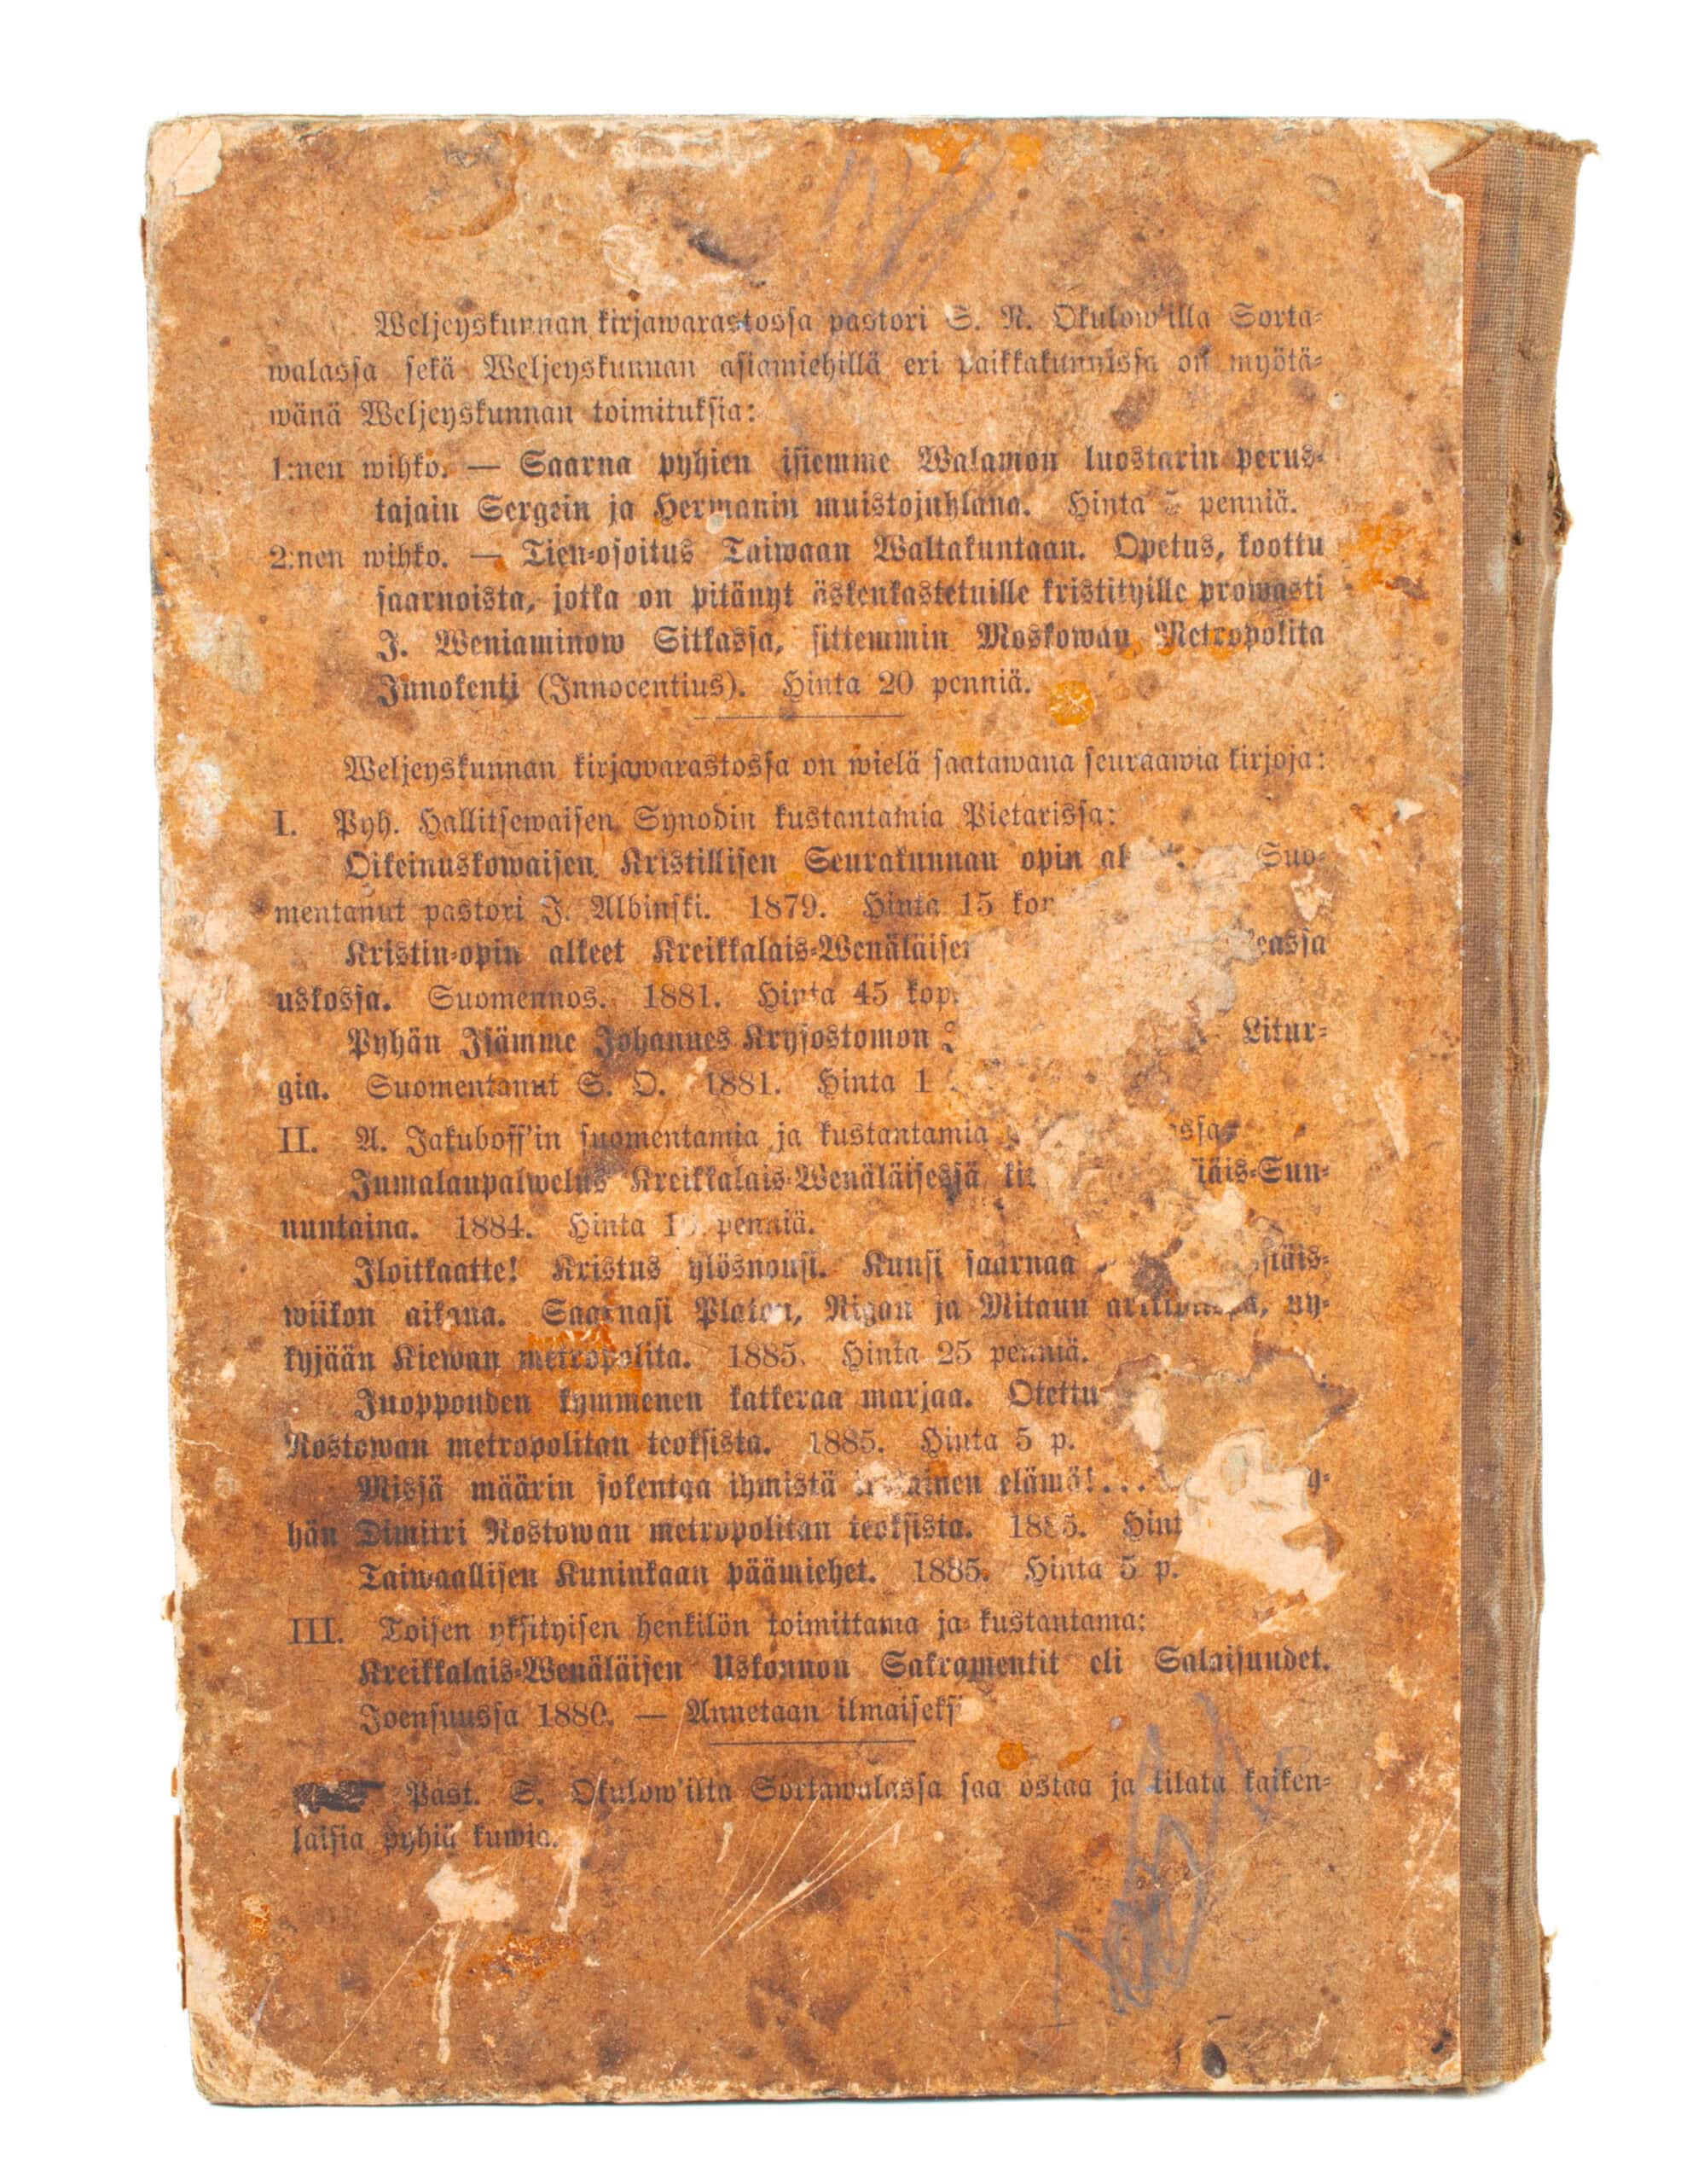 Weljeyskunnan kirjawarastossa pastori S. N. Okulow'illa Sorta-
walassa sekä Weljeyskunnan asiamiehillä eri paikkakunnissa on myötä-
wänä Weljeyskunnan toimituksia:
1:nen wihko. — Saarna pyhien isiemme Walamon luostarin perus-
tajain Sergein ja Hermanin muistojuhlana. Hinta penniä.
2:nen wihko. — Tien-osoitus Taiwaan Waltakuntaan. Opetus, koottu
saarnoista, jotka on pitänyt äskenkastetuille kristityille prowasti
J. Weniaminow Sitkassa, sittemmin Moskowan Metropolita
Innokenti (Innocentius). Hinta 20 penniä.
Weljeyskunnan kirjawarastossa on wielä saatawana seuraawia kirjoja:
I. Pyh. Hallitsewaisen Synodin kustantamia Pietarissa:
Oikeinuskowaisen Kristillisen Seurakunnan opin Suo-
mentanut pastori J. Albinski. 1879. Hinta 15
Kristin-opin alkeet
uskossa. Suomennos. 1881. Hinta 45 kop.
Pyhän Isämme Johannes Krysostomon Litur-
gia. Suomentanut S. O. 1881. Hinta 1
II. A. Jakuboff'in suomentamia ja kustantamia
Jumalanpalwelus Kreikkalais-Wenäläisessä
nuntaina. 1884. Hinta penniä.
Iloitkaatte! Kristus ylösnousi. Kuusi saarnaa
wiikon aikana. Saarnasi Platon, Rigan ja Mitaun ny-
kyjään Kiewan metropolita. 1885. Hinta 25 penniä.
Juopponden kymmenen katkeraa marjaa. Otettu
Rostowan metropolitan teoksista. 1885. Hinta 5 p.
Missä määrin sokentaa ihmistä elämä!...
hän Dimitri Rostowan metropolitan teoksista. 1885.
Taiwaallisen Kuninkaan päämiehet. 1885. Hinta 5 p.
III. Toisen yksityisen henkilön toimittama ja kustantama:
Kreikkalais-Wenäläisen Uskonnon Sakramentit eli Salaisuudet.
Joensuussa 1880. — Annetaan ilmaiseksi
Past. S. Okulow'ilta Sortawalassa saa ostaa ja tilata kaiken-
laisia pyhiä kuwia.